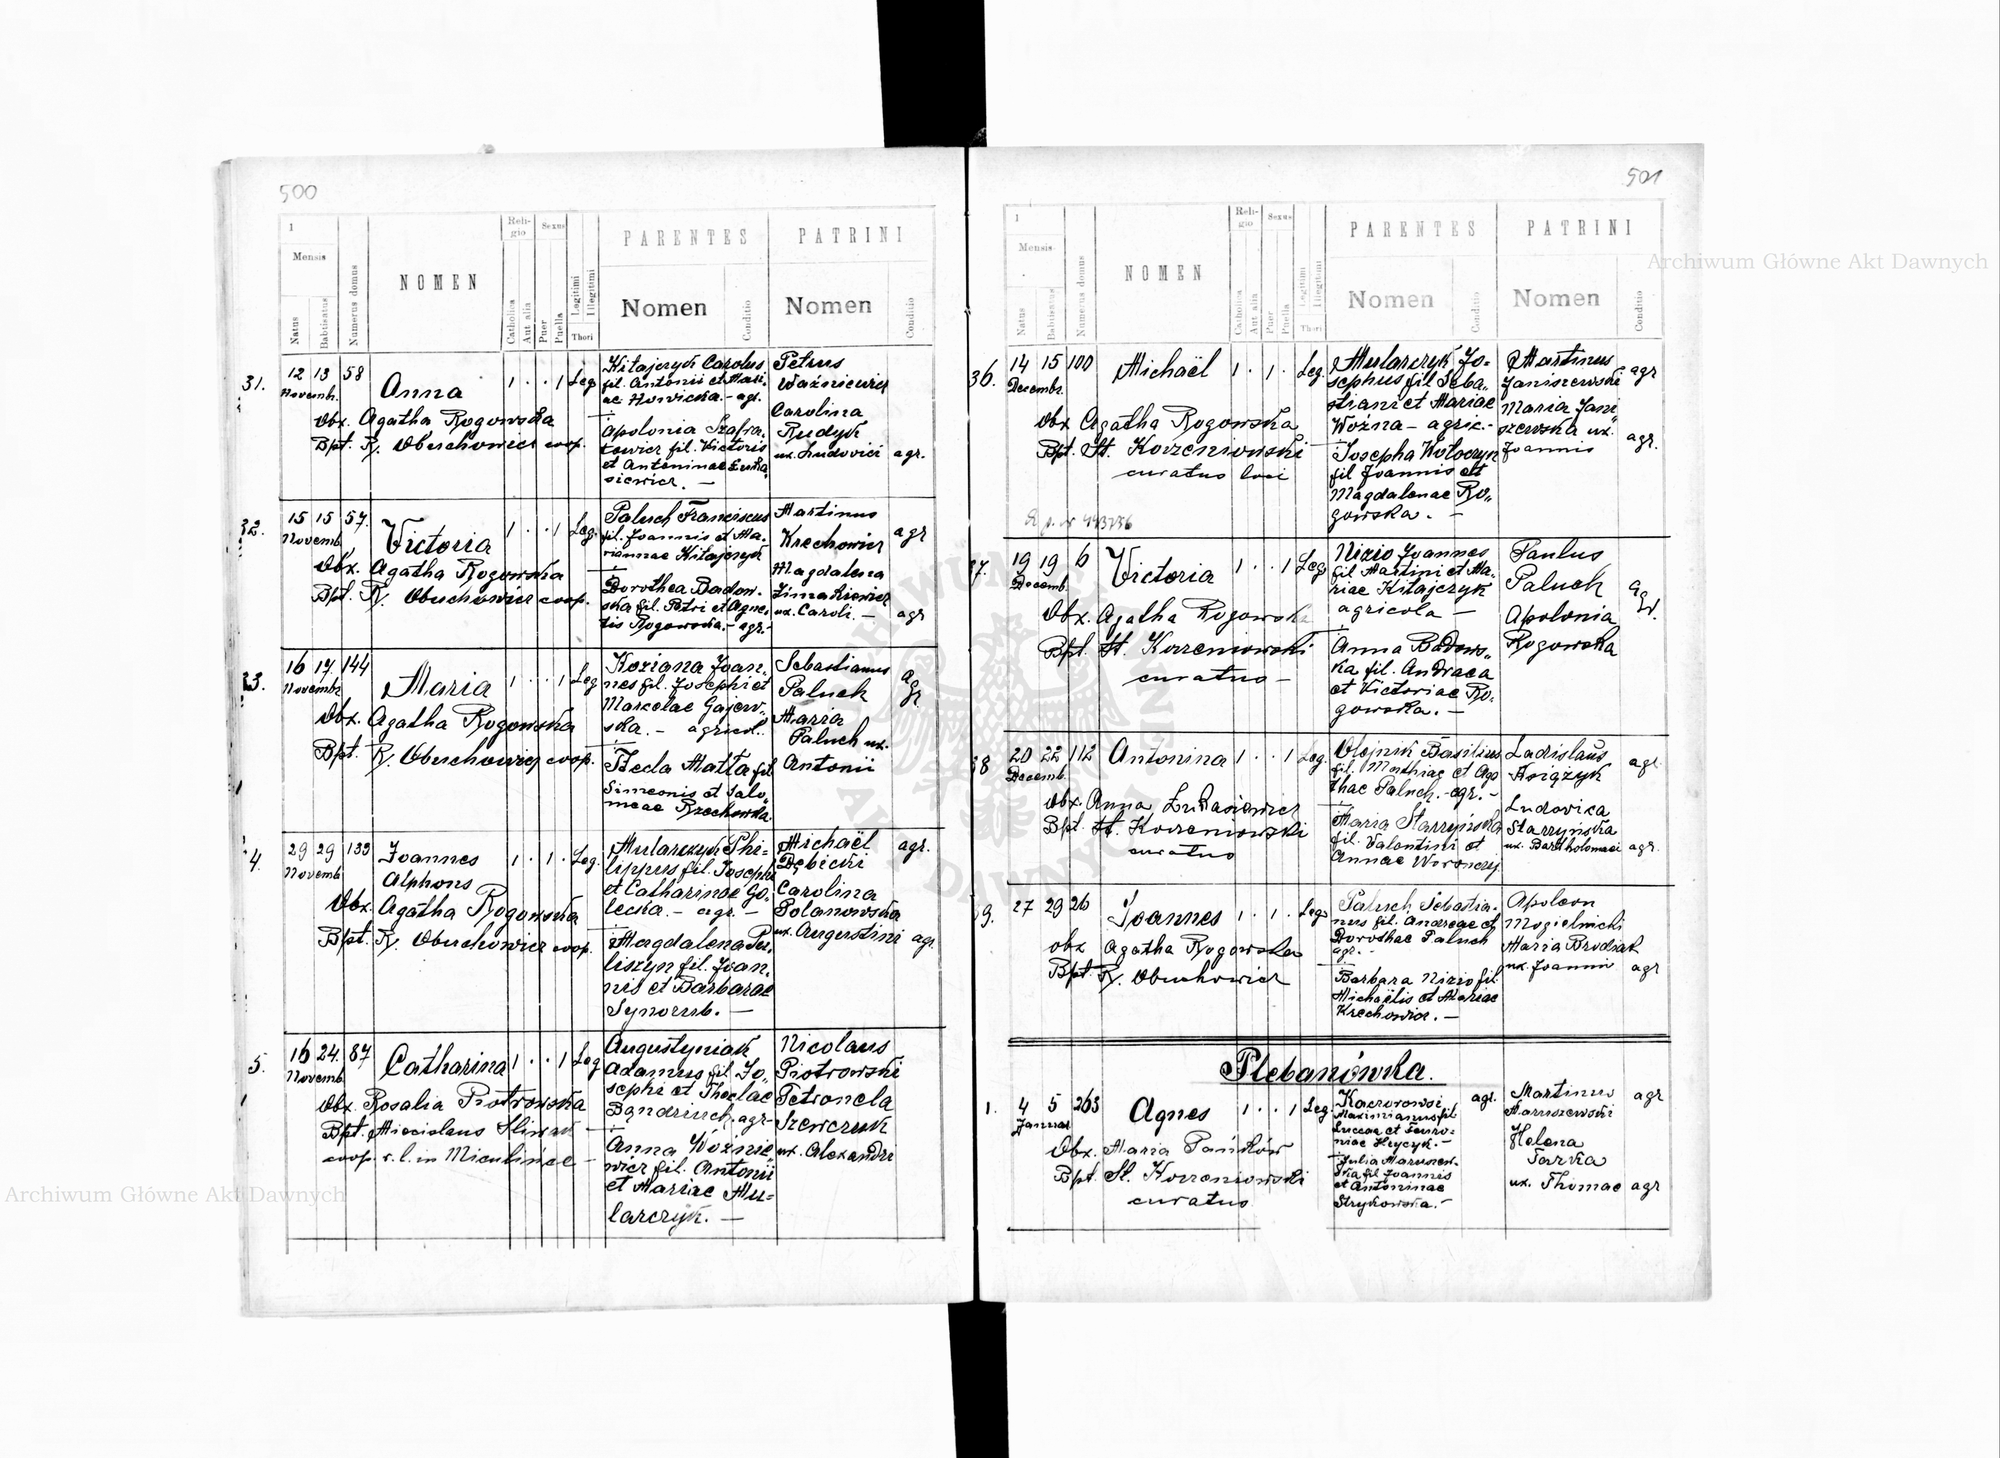 500
1
Mensis
Natus
Babtisatus
Numerus domus
NOMEN
Reli-
gio
Catholica
Aut alia
Sexus
Puer
Puella
Legitimi
Illegitimi
Thori
PARENTES
Nomen
Conditio
PATRINI
Nomen
Conditio
31.
12 13 58
Novemb.
Anna
1 . . 1 Leg
Obx. Agatha Rogowska
Bpt. R. Obuchowicz coop.
Kitajczyk Carolus
fil. Antonii et Mari-
ae Howicka. - agr.
Apolonia Szafra-
towicz fil. Victoris
et Antoninae Łuka
siewicz. —
Petrus
Woźniewicz
Carolina
Rudyk
ux. Ludovici agr.
32.
15 15 57.
Novemb.
Victoria
1 . . 1 Leg.
Obx. Agatha Rogowska
Bpt. R. Obuchowicz coop.
Paluch Franciscus
fil. Joannis et Ma-
riannae Kitajczyk
Dorothea Badow-
ska fil. Petri et Agne-
tis Rogowska. - agr. -
Martinus
Krechowicz
agr
Magdalena
Zimakiewicz
ux. Caroli. — agr
33.
16 17. 144
Novembr.
Maria
1 . . 1 Leg
Obx. Agatha Rogowska
Bpt. R. Obuchowicz coop.
Koziana Joan-
nes fil. Josephi et
Marcelae Gajew-
ska. - agricol.
Thecla Matta fil
Simeonis et Salo-
meae Krechowska.
Sebastianus
Paluch
agr
Maria
Paluch ux.
Antonii
4
29 29 133
Novemb
Joannes
Alphons
1 . 1 . Leg.
Obx. Agatha Rogowska
Bpt. R. Obuchowicz coop.
Mularczyk Phi-
lippus fil. Josephi
et Catharinae Go-
lecka. - agr. -
Magdalena Pu-
liszyn fil. Joan-
nis et Barbarae
Synorub. —
Michaël agr.
Dębicki
Carolina
Polanowska
ux. Augustini agr.
5.
16 24. 87
Novemb.
Catharina 1 . . 1 Leg
Obx. Rosalia Piotrowska
Bpt. Miecislaus Sliwak
coop. r. l. in Mikulińce —
Augustyniak
Adamus fil. Jo-
sephi et Theclae
Bandziuch. agr -
Anna Woźnie-
wicz fil. Antonii
et Mariae Mu-
larczyk. —
Nicolaus
Piotrowski
Petronela
Szewczuk
ux. Alexandri
501
1
Mensis
Natus
Babtisatus
Numerus domus
NOMEN
Reli-
gio
Catholica
Aut alia
Sexus
Puer
Puella
Legitimi
Illegitimi
Thori
PARENTES
Nomen
Conditio
PATRINI
Nomen
Conditio
36.
14 15 100
Decembr.
Michaël
1 . 1 . Leg.
Obx Agatha Rogowska
Bpt. St. Korzeniowski
curatus loci
Mularczyk Jo-
sephus fil Seba-
stiani et Mariae
Woźna - agric. -
Josepha Wołoczyn
fil Joannis et
Magdalenae Ro-
gowska. —
Martinus
Janiszewski agr
Maria Jani
szewska ux. agr.
Joannis
37.
19 19 6
Decemb.
Victoria
1 . . 1 Leg
Obx. Agatha Rogowska
Bpt. St. Korzeniowski
curatus -
Nizio Joannes
fil Martini et Ma-
riae Kitajczyk
agricola —
Anna Badows-
ka fil. Andraea
et Victoriae Ro-
gowska. —
Paulus
Paluch
agr.
Apolonia
Rogowska
38
20 22 112
Decemb.
Antonina 1 . . 1 Leg.
Obx. Anna Łukasiewicz
Bpt. St. Korzeniowski
curatus
Olejnik Basilius
fil. Mathiae et Aga
thae Paluch. - agr. -
Maria Starzyńska
fil. Valentini et
Annae Woronczy
Ladislaus agr
Książyk
Ludovica
Starzyńska
ux. Bartholomaei agr.
39.
27 29 26
Joannes 1 . 1 . Leg.
obx Agatha Rogowska
Bpt. R. Obuchowicz
Paluch Sebastia-
nus fil. Andreae et
Dorothae Paluch
agr. -
Barbara Nizio fil.
Michaëlis et Mariae
Krechowicz. —
Apoleon
Mogielnicki
Maria Brodiak
ux. Joannis agr
Plebanówka.
1.
4 5 263
Januar
Agnes 1 . . 1 Leg.
Obx. Maria Pańków
Bpt. St. Korzeniowski
curatus
Kaczorowski agr.
Maximianus fil.
Luccae et Fewro-
niae Hrycyk. -
Julia Maruszew-
ska fil. Joannis
et Antoninae
Strykowska. -
Martinus agr
Maruszewski
Helena
Tarka
ux. Thomae agr
Archiwum Główne Akt Dawnych
Archiwum Główne Akt Dawnych
ARCHIWUM GŁÓWNE
AKT DAWNYCH